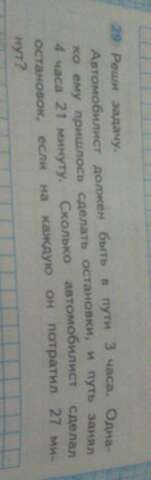 29 Реши задачу.
Автомобилист должен быть в пути 3 часа. Одна-
ко ему пришлось сделать остановки, и путь занял
4 часа 21 минуту. Сколько автомобилист сделал
остановок, если на каждую он потратил 27 ми-
нут?